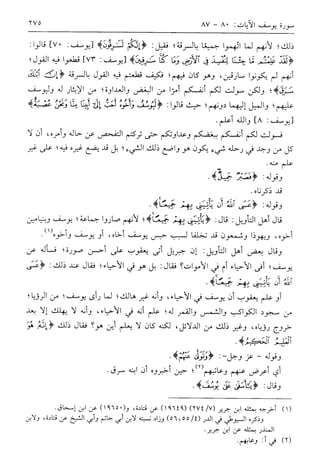 سورة يوسف الآيات: ٨٠ - ٨٧
٢٧٥
ذلك؛ لأنهم لما اتهموا جميعًا بالسرقة؛ فقيل: ﴿إِنَّكُمْ لَسَارِقُونَ﴾ [يوسف: ٧٠] قالوا:
﴿لَقَدْ عَلِمْتُم مَّا جِئْنَا لِنُفْسِدَ فِي الْأَرْضِ وَمَا كُنَّا سَارِقِينَ﴾ [يوسف: ٧٣] قطعوا فيه القول؛
أنهم لم يكونوا سارقين، وهو كان فيهم؛ فكيف قطعتم فيه القول بالسرقة ﴿إِنَّ ابْنَكَ
سَرَقَ﴾؛ ولكن سولت لكم أنفسكم أمرًا من البغض والعداوة؛ من الإيثار له وليوسف
عليهم؛ والميل إليهما دونهم؛ حيث قالوا: ﴿لَيُوسُفُ وَأَخُوهُ أَحَبُّ إِلَىٰ أَبِينَا مِنَّا وَنَحْنُ عُصْبَةٌ﴾
[يوسف: ٨] والله أعلم.
فسولت لكم أنفسكم ببغضكم وعداوتكم حتى تركتم التفحص عن حاله وأمره، أن لا
كل من وجد في رحله شيء يكون هو واضع ذلك الشيء؛ بل قد يضع غيره فيه؛ على غير
علم منه.
وقوله: ﴿فَصَبْرٌ جَمِيلٌ﴾.
قد ذكرناه.
وقوله: ﴿عَسَى اللَّهُ أَن يَأْتِيَنِي بِهِمْ جَمِيعًا﴾.
قال أهل التأويل: قال: ﴿يَأْتِيَنِي بِهِمْ جَمِيعًا﴾؛ لأنهم صاروا جماعة؛ يوسف وبنيامين
أخوه، ويهوذا وشمعون قد تخلفا لسبب حبس يوسف أخاه، أو يوسف وأخوه(١).
وقال بعض أهل التأويل: إن جبريل أتى يعقوب على أحسن صورة؛ فسأله عن
يوسف؛ أفي الأحياء أم في الأموات؟ فقال: بل هو في الأحياء؛ فقال عند ذلك: ﴿عَسَى
اللَّهُ أَن يَأْتِيَنِي بِهِمْ جَمِيعًا﴾.
أو علم يعقوب أن يوسف في الأحياء، وأنه غير هالك؛ لما رأى يوسف؛ من الرؤيا؛
من سجود الكواكب والشمس والقمر له؛ علم أنه في الأحياء، وأنه لا يهلك إلا بعد
خروج رؤياه، وغير ذلك من الدلائل، لكنه كان لا يعلم أين هو؟ فقال ذلك ﴿إِنَّهُ هُوَ
الْعَلِيمُ الْحَكِيمُ﴾.
وقوله - عز وجل-: ﴿وَتَوَلَّىٰ عَنْهُمْ﴾.
أي أعرض عنهم وعاتبهم(٢)؛ حين أخبروه أن ابنه سرق.
وقال: ﴿يَا أَسَفَىٰ عَلَىٰ يُوسُفَ﴾.
(١) أخرجه بمثله ابن جرير (٢٧٤/٧) (١٩٦٤٩) عن قتادة، و(١٩٦٥٠) عن ابن إسحاق.
وذكره السيوطي في الدر (٥٦/٤) وزاد نسبته لابن أبي حاتم وأبي الشيخ عن قتادة، ولابن
المنذر بمثله عن ابن جرير.
(٢) في أ: وعابهم.